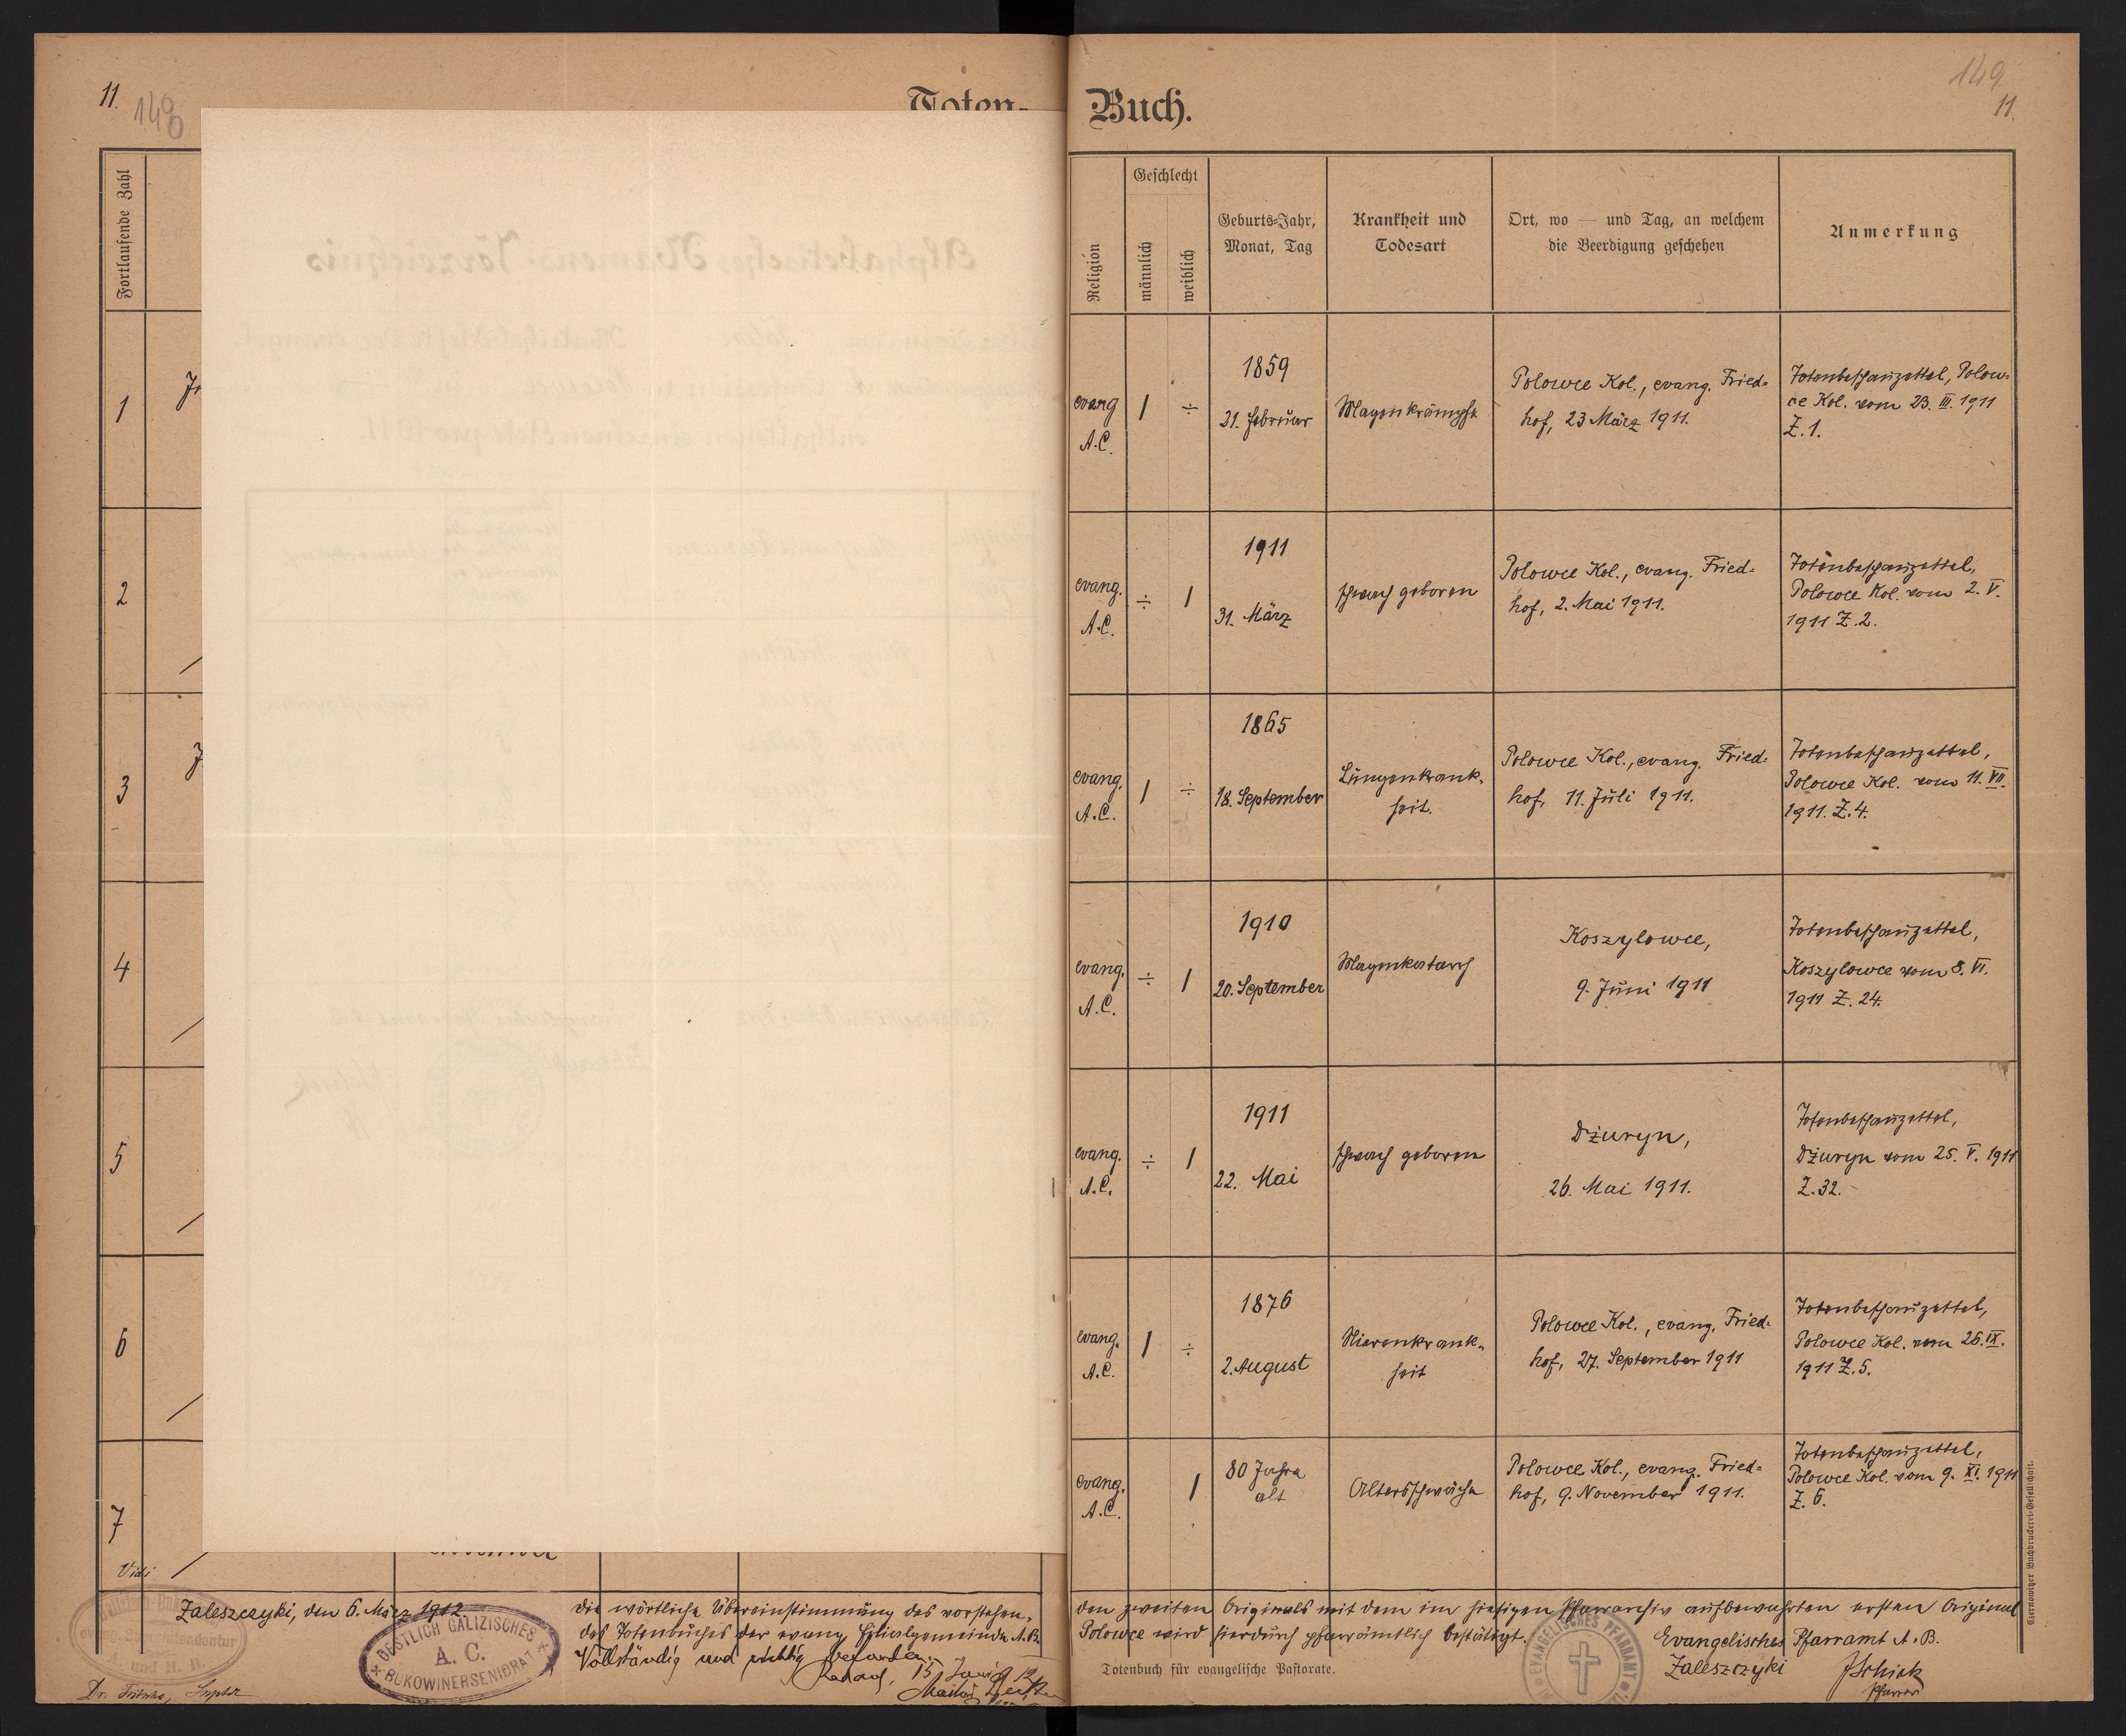 11.
149
Toten-
Fortlaufende Zahl
1
2
3
4
5
6
7
Vidi
Zaleszczyki, den 6. März 1912
OESTLICH GALIZISCHES
A. C.
BUKOWINERSENIORAT
Die wörtliche Übereinstimmung des vorstehen-
des Totenbuches der evang. Filialgemeinde A.B.
Vollständig und richtig befunden.
Radautz, 15 Juni 1912
Buch.
149
11.
Religion
Geschlecht
männlich
weiblich
Geburts-Jahr,
Monat, Tag
Krankheit und
Todesart
Ort, wo — und Tag, an welchem
die Beerdigung geschehen
Anmerkung
evang
A.C.
1
÷
1859
21. Februar
Magenkrämpfe
Polowce Kol., evang. Fried-
hof, 23 März 1911.
Totenbeschauzettel, Polow-
ce Kol. vom 23. III. 1911
Z. 1.
evang.
A.C.
÷
1
1911
31. März
schwach geboren
Polowce Kol., evang. Fried-
hof, 2. Mai 1911.
Totenbeschauzettel,
Polowce Kol. vom 2. V.
1911 Z. 2.
evang.
A.C.
1
÷
1865
18. September
Lungenkrank-
heit.
Polowce Kol., evang. Fried-
hof, 11. Juli 1911.
Totenbeschauzettel,
Polowce Kol. vom 11. VII.
1911. Z. 4.
evang.
A.C.
÷
1
1910
20. September
Magenkatarrh
Koszylowce,
9. Juni 1911
Totenbeschauzettel,
Koszylowce vom 8. VI.
1911 Z. 24.
evang.
A.C.
÷
1
1911
22. Mai
schwach geboren
Dżuryn,
26. Mai 1911.
Totenbeschauzettel,
Dżuryn vom 25. V. 1911
Z. 32.
evang.
A.C.
1
÷
1876
2. August
Nierenkrank-
heit
Polowce Kol., evang. Fried-
hof, 27. September 1911
Totenbeschauzettel,
Polowce Kol. vom 26. IX.
1911 Z. 5.
evang.
A.C.
1
80 Jahre
alt
Altersschwäche
Polowce Kol., evang. Fried-
hof, 9. November 1911.
Totenbeschauzettel,
Polowce Kol. vom 9. XI. 1911
Z. 6.
den zweiten Originals mit dem im hiesigen Pfarrarchiv aufbewahrten ersten Original
Polowce wird hierdurch pfarrämtlich bestätigt.
Evangelisches Pfarramt A. B.
Zaleszczyki
JSchick
Pfarrer
EVANGELISCHES PFARRAMT
Totenbuch für evangelische Pastorate.
Czernowitzer Buchdruckerei-Gesellschaft.